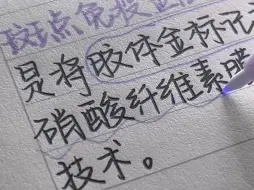 斑点免疫
是将胶体金标记
硝酸纤维素膜
技术。